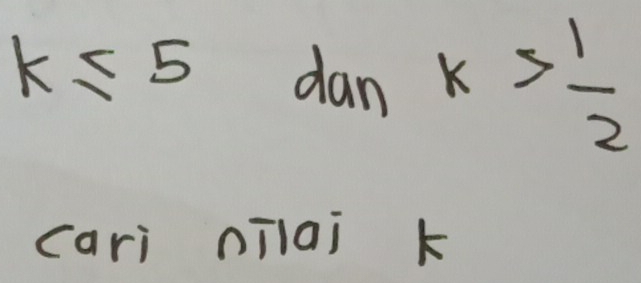 k ≤ 5 dan k > 1/2
cari nilai k